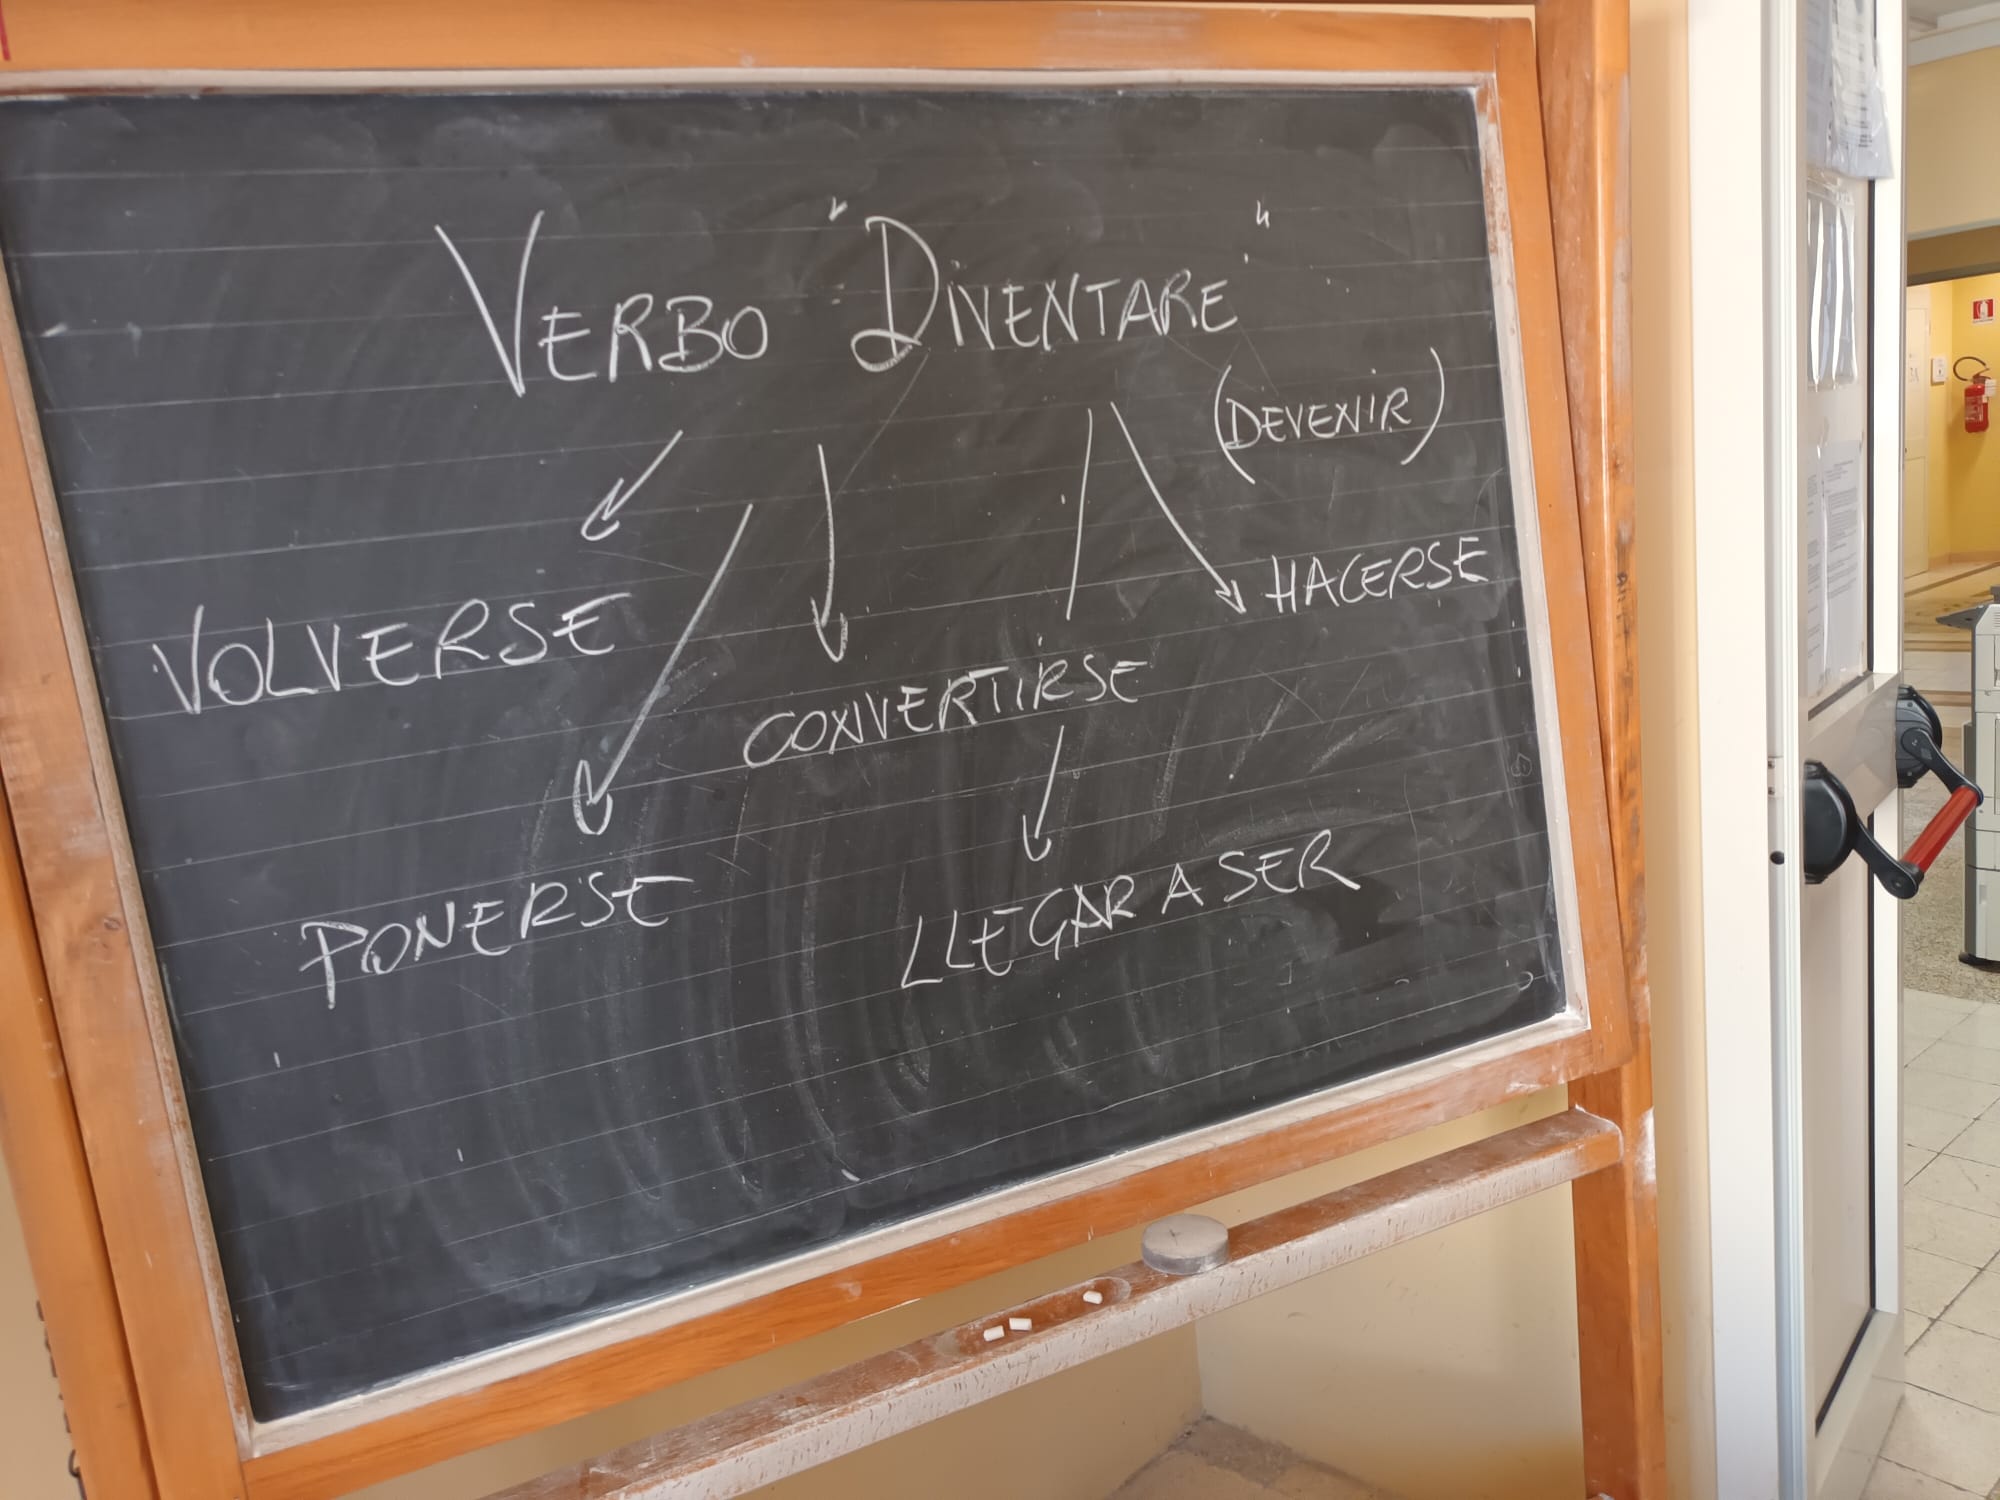 VERBO "DIVENTARE"
(DEVENIR)
HACERSE
VOLVERSE
CONVERTIRSE
PONERSE
LLEGAR A SER